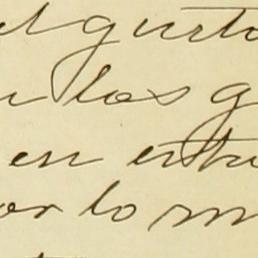 el gusto
los g
en estu
por lo m